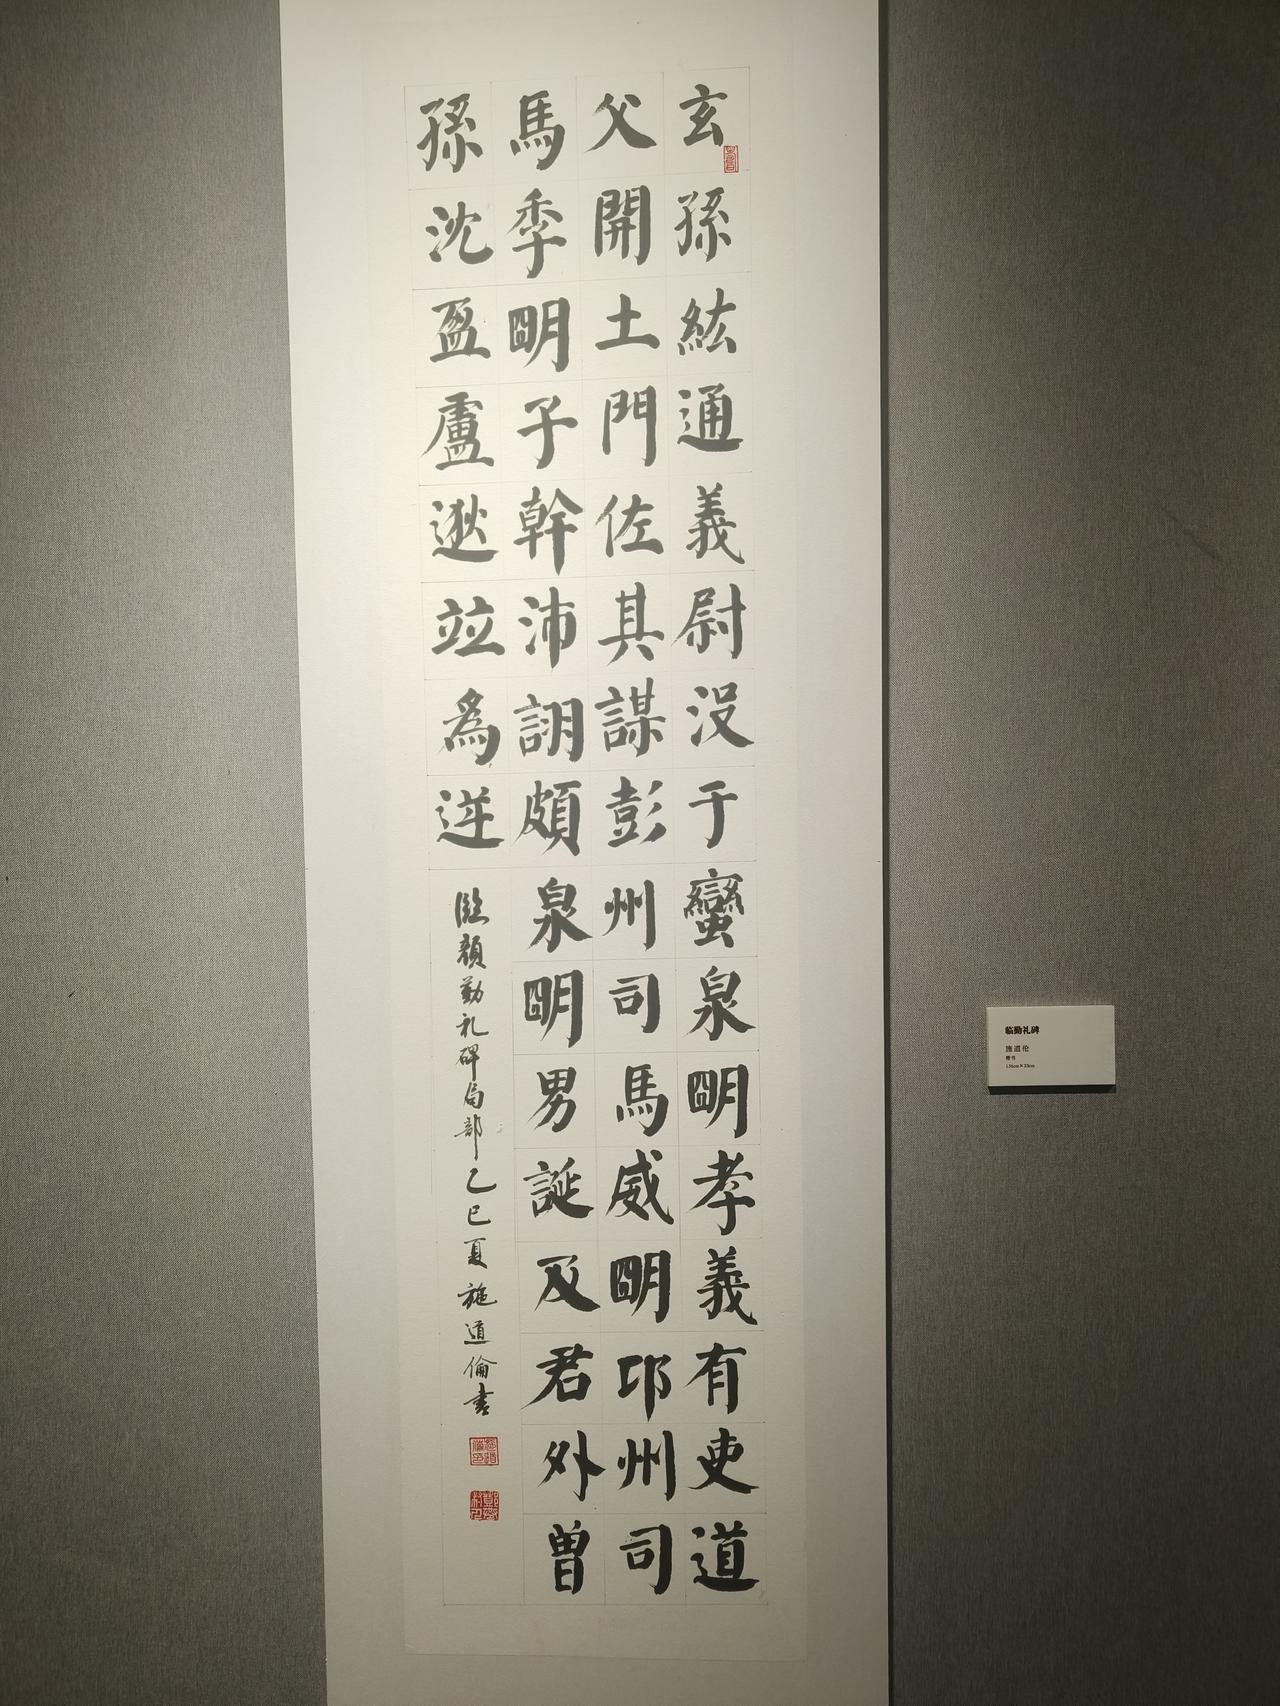 玄孫紘通義尉没于蠻泉明孝義有吏道
父開土門佐其謀彭州司馬威明邛州司
馬季明子幹沛詡頗泉明男誕及君外曾
孫沈盈盧逖竝為逆
臨顏勤礼碑局部乙巳夏施道倫書
临勤礼碑
施道伦
楷书
136cm×33cm